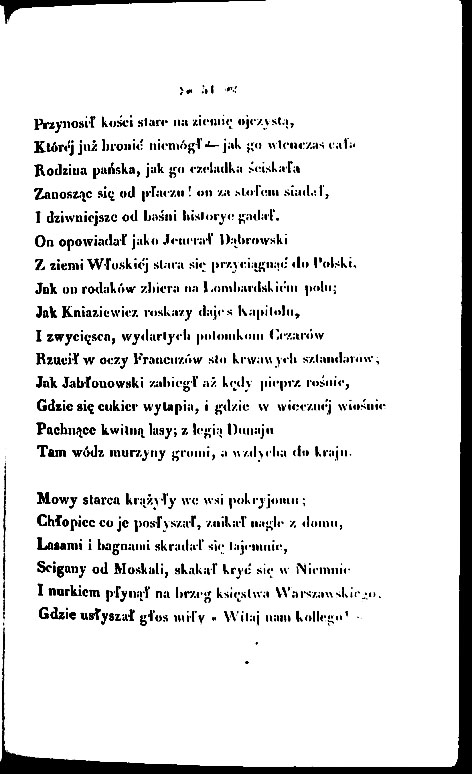 51
Przynosił kości stare na ziemię ojczystą,
Któréj już bronić niemógł — jak go wtenczas cała
Rodzina pańska, jak go czeladka ściskała
Zanosząc się od płaczu! on za stołem siadał,
I dziwniejsze od baśni historye gadał.
On opowiadał jako Jenerał Dąbrowski
Z ziemi Włoskiéj stara się przyciągnąć do Polski,
Jak on rodaków zbiera na Lombardskiém polu;
Jak Kniaziewicz roskazy daje s Kapitolu,
I zwycięsca, wydartych potomkom Cezarów
Rzucił w oczy Francuzów sto krwawych sztandarow;
Jak Jabłonowski zabiegł aż kędy pieprz rośnie,
Gdzie się cukier wytapia, i gdzie w wiecznéj wiośnie
Pachnące kwitną lasy; z legią Dunaju
Tam wódz murzyny gromi, a wzdycha do kraju.
Mowy starca krążyły we wsi pokryjomu;
Chłopiec co je posłyszał, znikał nagle z domu,
Lasami i bagnami skradał się tajemnie,
Scigany od Moskali, skakał kryć się w Niemnie
I nurkiem płynął na brzeg księstwa Warszawskiego,
Gdzie usłyszał głos miły « Witaj nam kollego!